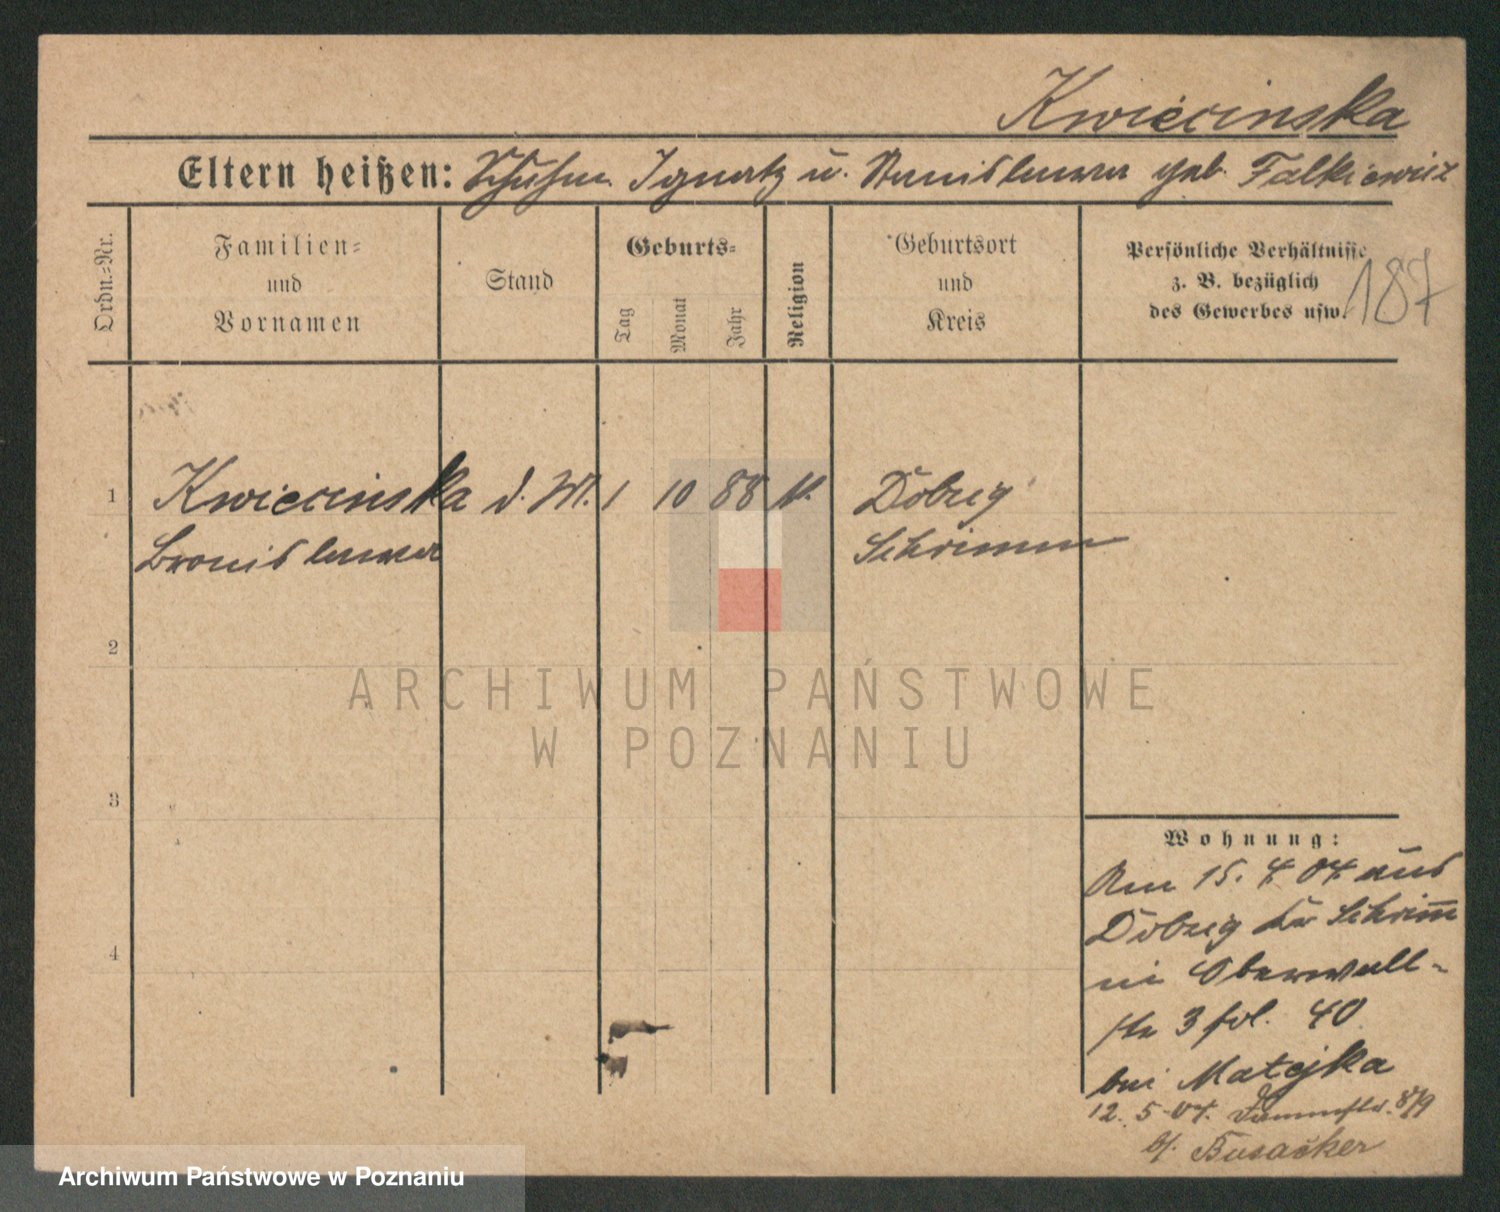 Kwiecinska
Eltern heißen: Ignatz u. Stanislawa geb. Falkiewicz
Ordn.=Nr.
Familien=
und
Vornamen
Stand
Geburts=
Tag
Monat
Jahr
Religion
Geburtsort
und
Kreis
Persönliche Verhältnisse
z. B. bezüglich
des Gewerbes usw.
187
1 Kwiecinska d. M. 1 10 88 k.
Bronislawa
Schrimm
2
3
4
Wohnung:
Am 15. 4 04 aus
Schrimm
in Oberwall-
str 3 fol. 40
bei Matejka
12. 5. 04. 8/9
b/. Busacker
ARCHIWUM PAŃSTWOWE
W POZNANIU
Archiwum Państwowe w Poznaniu